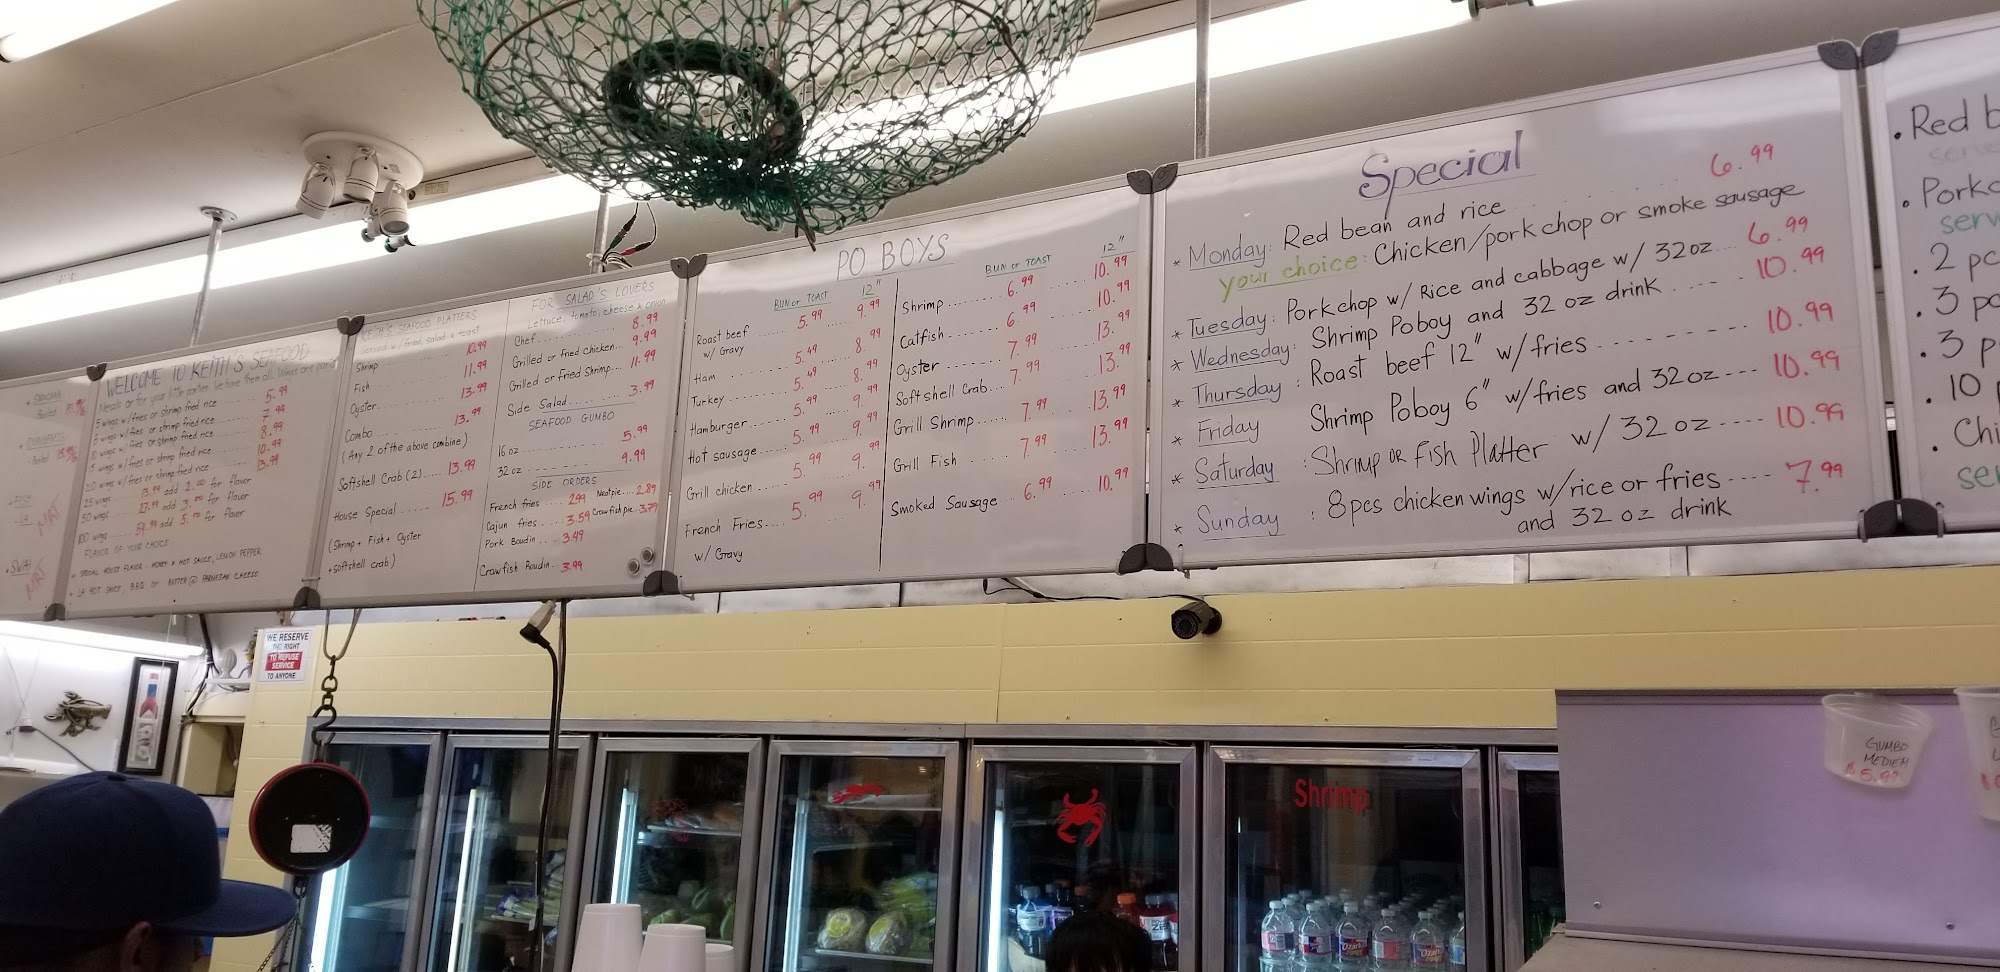 WELCOME TO KEITH'S SEAFOOD
Meals or for your little parties. We have them all. Wings are
5 wings w/fries or shrimp fried rice ..... 5.99
8 wings w/fries or shrimp fried rice ..... 7.99
10 wings w/fries or shrimp fried rice ..... 8.99
15 wings w/fries or shrimp fried rice ..... 10.99
20 wings w/fries or shrimp fried rice ..... 13.99
25 wings add 2.00 for flavor
50 wings add 3.00 for flavor
100 wings add 5.00 for flavor
FLAVOR OF YOUR CHOICE
* SPECIAL HOUSE FLAVOR: HONEY & HOT SAUCE, LEMON PEPPER
* LA HOT SAUCE, B.B.Q OR BUTTER @ PARMESAN CHEESE
KEITH'S SEAFOOD PLATTERS
Served w/fried, salad & toast
Shrimp ..... 10.99
Fish ..... 11.99
Oyster ..... 13.99
Combo ..... 13.99
(Any 2 of the above combine)
Softshell Crab (2) .... 13.99
House Special ..... 15.99
(Shrimp + Fish + Oyster
+ softshell crab)
FOR SALAD'S LOVERS
Lettuce, tomato, cheese & onion
Chef ..... 8.99
Grilled or fried chicken... 9.99
Grilled or fried Shrimp... 11.99
Side Salad ..... 3.99
SEAFOOD GUMBO
16 oz ..... 5.99
32 oz ..... 9.99
SIDE ORDERS
French fries .... 2.99 Meat pie .... 2.89
Cajun fries ... 3.59 Crawfish pie... 3.79
Pork Boudin ... 3.49
Crawfish Boudin.. 3.99
PO BOYS
BUN or TOAST 12"
Roast beef ..... 5.99 9.99
w/ Gravy
Ham ..... 5.49 8.99
Turkey ..... 5.49 8.99
Hamburger ..... 5.99 9.99
Hot sausage ..... 5.99 9.99
Grill chicken ..... 5.99 9.99
French Fries.... 5.99 9.99
w/ Gravy
BUN or TOAST 12"
Shrimp ..... 6.99 10.99
Catfish ..... 6.99 10.99
Oyster ..... 7.99 13.99
Softshell Crab... 7.99 13.99
Grill Shrimp ..... 7.99 13.99
Grill Fish ..... 7.99 13.99
Smoked Sausage .. 6.99 10.99
Special
* Monday: Red bean and rice ..... 6.99
your choice: Chicken/pork chop or smoke sausage
* Tuesday: Porkchop w/ Rice and cabbage w/ 32oz... 6.99
* Wednesday: Shrimp Poboy and 32 oz drink .... 10.99
* Thursday: Roast beef 12" w/fries ..... 10.99
* Friday Shrimp Poboy 6" w/fries and 32oz... 10.99
* Saturday: Shrimp or Fish Platter w/ 32 oz .... 10.99
* Sunday: 8pcs chicken wings w/rice or fries .... 7.99
and 32 oz drink
WE RESERVE
THE RIGHT
TO REFUSE
SERVICE
TO ANYONE
Shrimp
GUMBO
MEDIEM
$5.99